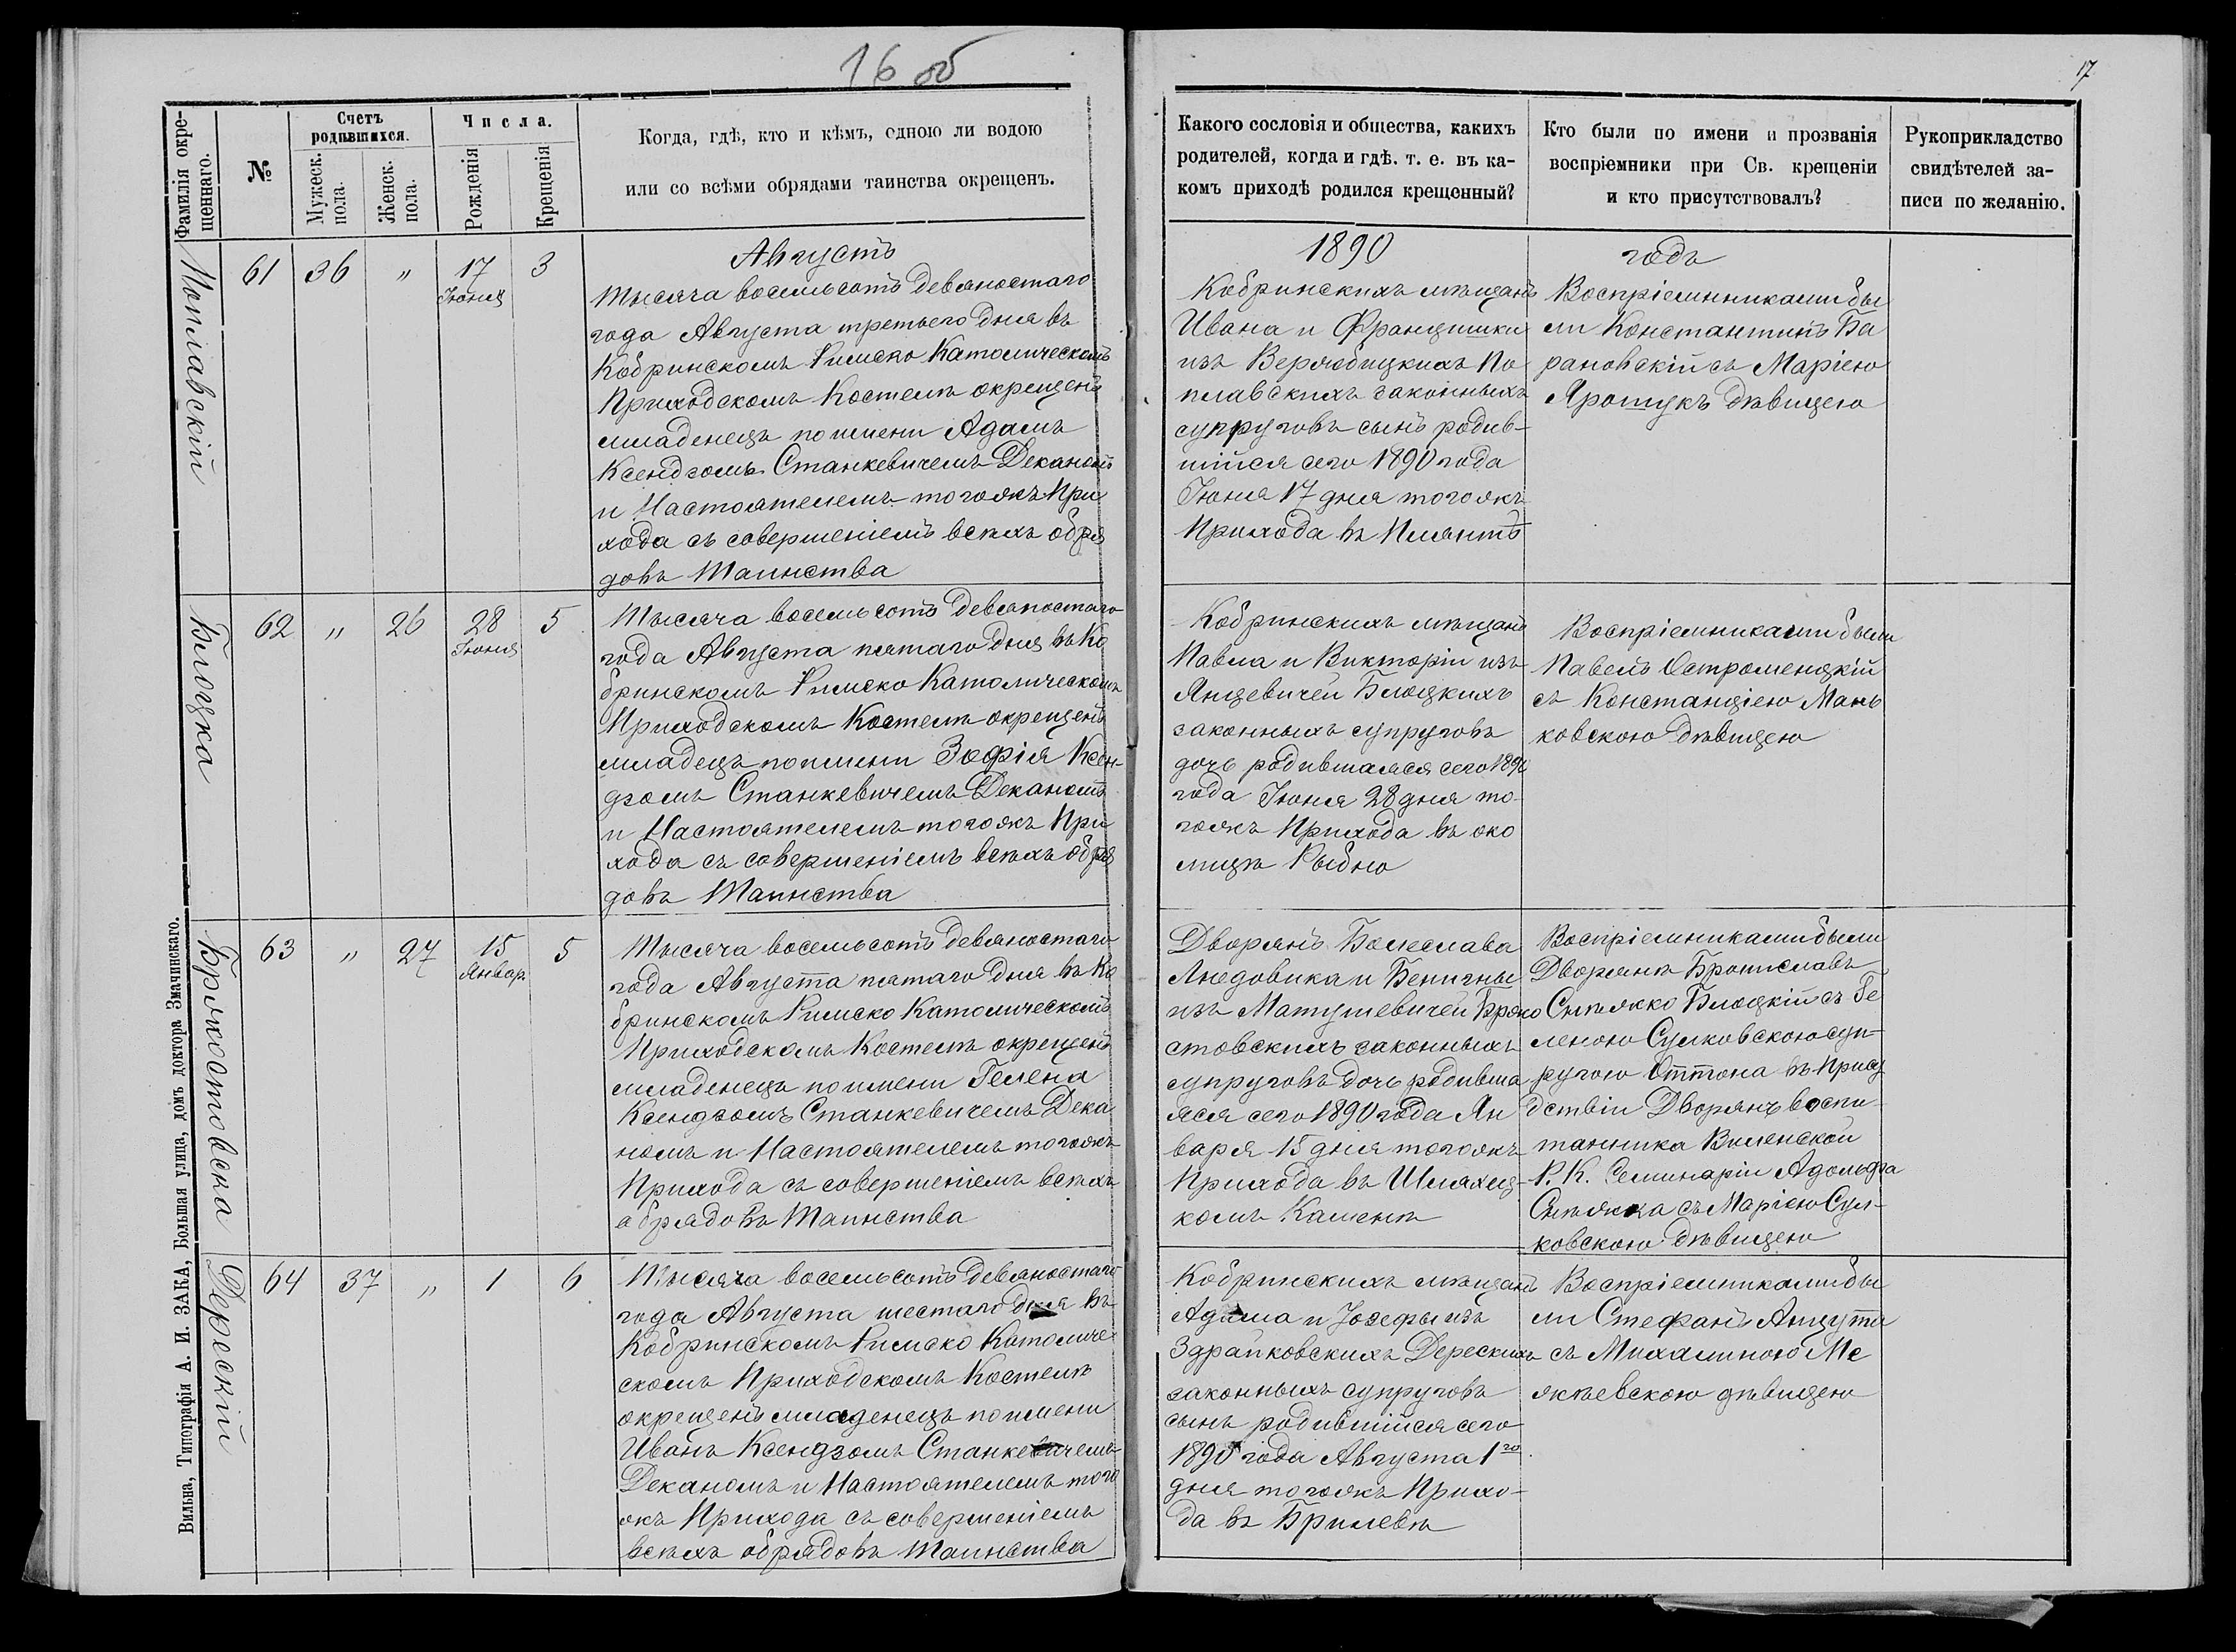 16 об
17
Фамилія окре-
щеннаго.
№
Счетъ
родившихся.
Мужеск.
пола.
Женск.
пола.
Числа.
Рожденія
Крещенія
Когда, гдѣ, кто и кѣмъ, одною ли водою
или со всѣми обрядами таинства окрещенъ.
Какого сословія и общества, какихъ
родителей, когда и гдѣ. т. е. въ ка-
комъ приходѣ родился крещенный?
Кто были по имени и прозванія
воспріемники при Св. крещеніи
и кто присутствовалъ?
Рукоприкладство
свидѣтелей за-
писи по желанію.
Поплавскій
61
36
"
17
Іюня
3
Августъ
Тысяча восемьсотъ девяностаго
года Августа третьего дня въ
Кобринскомъ Римско Католическомъ
Приходскомъ Костелѣ окрещенъ
младенецъ по имени Адамъ
Ксендзомъ Станкевичемъ Деканомъ
и Настоятелемъ тогожъ При
хода съ совершеніемъ всѣхъ обря
довъ Таинства
1890
Кобринскихъ мѣщанъ
Ивана и Францишки
изъ Верховицкихъ По
плавскихъ законныхъ
супруговъ сынъ родив-
шійся сего 1890 года
Іюня 17 дня тогожъ
Прихода въ
годъ
Воспріемниками бы
ли Константинъ Ба
рановскій съ Маріею
Ярошукъ дѣвицею
Блоцка
62
"
26
28
Іюня
5
Тысяча восемьсотъ девяностаго
года Августа пятаго дня въ Ко
бринскомъ Римско Католическомъ
Приходскомъ Костелѣ окрещенъ
младецъ по имени Зофія Ксен-
дзомъ Станкевичемъ Деканомъ
и Настоятелемъ тогожъ При
хода съ совершеніемъ всѣхъ обря
довъ Таинства
Кобринскихъ мѣщанъ
Павла и Викторіи изъ
Янцевичей Блоцкихъ
законныхъ супруговъ
дочь родившаяся сего 1890
года Іюня 28 дня то-
гожъ Прихода въ око
лицѣ Рыбно
Воспріемниками были
Павелъ Остроменцкій
съ Констанціею Мань
ковскою дѣвицею
Брохостовска
63
"
27
15
Январ
5
Тысяча восемьсотъ девяностаго
года Августа пятаго дня въ Ко
бринскомъ Римско Католическомъ
Приходскомъ Костелѣ окрещенъ
младенецъ по имени Гелена
Ксендзомъ Станкевичемъ Дека
номъ и Настоятелемъ тогожъ
Прихода съ совершеніемъ всѣхъ
обрядовъ Таинства
Дворянъ Болеслава
Людовика и Бенигны
изъ Матушевичей Брохо
стовскихъ законныхъ
супруговъ дочь родивша
яся сего 1890 года Ян
варя 15 дня тогожъ
Прихода въ Шляхец-
комъ Каменѣ
Воспріемниками были
Дворянъ Брониславъ
Блоцкій съ Ге
леною Сулковскою суп-
ругою Оттона въ Прису
дствіи Дворянъ воспи-
танника Виленской
Р. К. Семинаріи Адольфа
съ Маріею Сул-
ковскою дѣвицею
Дерескій
64
37
"
1
6
Тысяча восемьсотъ девяностаго
года Августа шестаго дня въ
Кобринскомъ Римско Католиче
скомъ Приходскомъ Костелѣ
окрещенъ младенецъ по имени
Иванъ Ксендзомъ Станкевичемъ
Деканомъ и Настоятелемъ того
жъ Прихода съ совершеніемъ
всѣхъ обрядовъ Таинства
Кобринскихъ мѣщанъ
Адама и Іозефы изъ
Здрайковскихъ Дерескихъ
законныхъ супруговъ
сынъ родившійся сего
1890 года Августа 1го
дня тогожъ Прихо-
да въ Брилевѣ
Воспріемниками бы
ли Стефанъ Анцута
съ Михалиною Ме
жѣевскою дѣвицею
Вильна, Типографія А. И. ЗАКА, Большая улица, домъ доктора Змачинскаго.